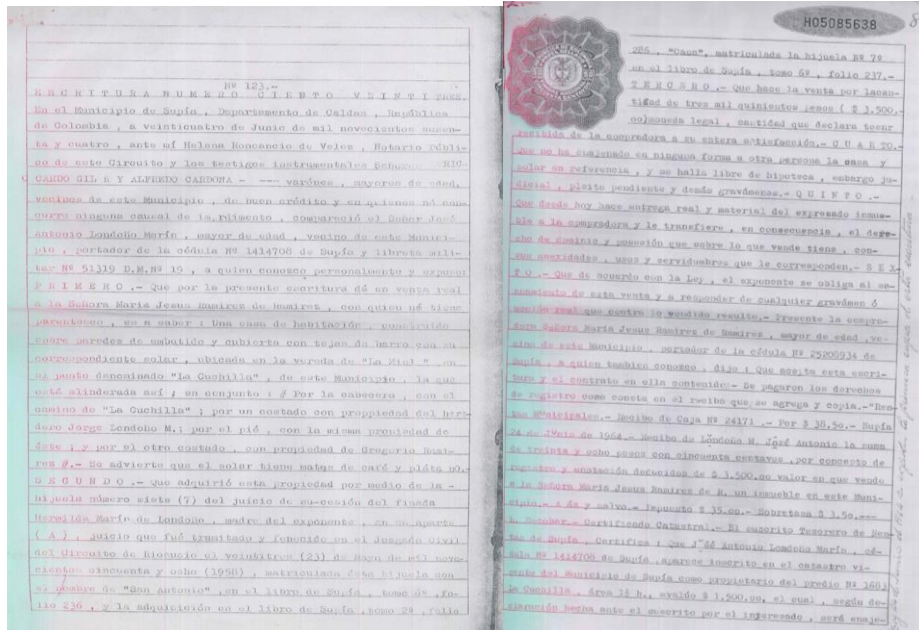 Nº 123.-
ESCRITURA NUMERO CIENTO VEINTITRES.
En el Municipio de Supía , Departamento de Caldas , República
de Colombia , a veinticuatro de Junio de mil novecientos sesen-
ta y cuatro , ante mí Helena Roncancio de Velez , Notario Públi-
co de este Circuito y los testigos instrumentales Señores RIC-
CARDO GIL E Y ALFREDO CARDONA - --- varónes , mayores de edad,
vecinos de este Municipio , de buen crédito y en quienes nó con-
curre ninguna causal de impedimento , compareció el Señor José
Antonio Londoño Marín , mayor de edad , vecino de este Munici-
pio , portador de la cédula Nº 1414708 de Supía y libreta mili-
tar Nº 51319 D.M.Nº 19 , a quien conozco personalmente y expuso:
P R I M E R O .- Que por la presente escritura dá en venta real
a la Señora María Jesus Ramirez de Ramirez , con quien nó tiene
parentesco , es a saber : Una casa de habitación , construida
sobre paredes de embutido y cubierta con tejas de barro con su
correspondiente solar , ubicada en la vereda de "La Miel " en
el punto denominado "La Cuchilla" , de este Municipio , la que
está alinderada así ; en conjunto : # Por la cabecera , con el
camino de "La Cuchilla" ; por un costado con proppiedad del here
dero Jorge Londoño M.; por el pié , con la misma propiedad de
éste ; y por el otro costado , con propiedad de Gregorio Rami-
rez #.- Se advierte que el solar tiene matas de café y pláta nO.
S E G U N D O .- Que adquirió esta propiedad por medio de la -
hijuela número siete (7) del juicio de su-cesión del finada
Hermilda Marín de Londoño , madre del exponente , en su aparte
( A ) , juicio que fué tramitado y fenecido en el Juzgado Civil
del Circuito de Riosucio el veintitres (23) de Mayo de mil nove-
cientos cincuenta y ocho (1958) , matriculada ésta hijuela con
el nombre de "San Antonio" , en el libro de Supía , tomo 6º , fo-
lio 236 , y la adquisición en el libro de Supía , tomo 2º , folio
H05085638
286 , "Casa", matriculada la hijuela Nº 7º
en el libro de Supía , tomo 6º , folio 237.-
T E R C E R O .- Que hace la venta por lacan-
tidad de tres mil quinientos pesos ( $ 3,500.
oo)moneda legal , cantidad que declara tener
recibida de la compradora a su entera satisfacción.- C U A R T O.-
Que no ha enajenado en ninguna forma a otra persona la casa y
solar en referencia , y se halla libre de hipoteca , embargo ju-
dicial , pleito pendiente y demás gravámenes.- Q U I N T O .-
Que desde hoy hace entrega real y material del expresado inmue-
ble a la compradora y le transfiere , en consecuencia , el dere-
cho de dominio y poseción que sobre lo que vende tiene , con-
sus anexidades , usos y servidumbres que le correspondan.- S E X
T O .- Que de acuerdo con la Ley , el exponente se obliga al sa-
neamiento de esta venta y a responder de cualquier gravámen ó
acción real que contra lo vendido resulte.- Presente la compra-
dora Señora María Jesus Ramirez de Ramirez , mayor de edad ,ve-
cina de este Municipio , portador de la cédula Nº 25200934 de
Supía , a quien tambien conozco , dijo : Que acepta esta escri-
tura y el contrato en ella contenido.- Se pagaron los derechos
de registro como consta en el recibo que se agrega y copia.-"Ren-
tas Municipales.- Recibo de Caja Nº 24171 .- Por $ 38,50.- Supía
24 de Junio de 1964.- Recibo de Londoño M. José Antonio la suma
de treinta y ocho pesos con cincuenta centavos ,por concepto de
registro y anotación deducidos de $ 3,500.oo valor en que vende
a la Señora María Jesus Ramirez de R. un inmueble en este Muni-
cipio.- A Paz y salvo.- Impuesto $ 35.oo.- Sobretasa $ 3.50.---
Certificado Catastral.- El suscrito Tesorero de Ren-
tas de Supía , Certifica : Que José Antonio Londoño Marín , cé-
dula Nº 1414708 de Supía ,aparece inscrito en el catastro vi-
gente del Municipio de Supía como propietario del predio Nº 168
La Cuchilla , área 1½ h., avalúo $ 1,500.oo, el cual , según de-
claración hecha ante el suscrito por el interesado , será enaje-